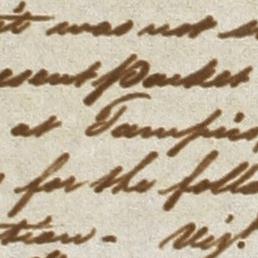 it was not s
esent Packet
at Tampi
for the follo
tion - Viz!